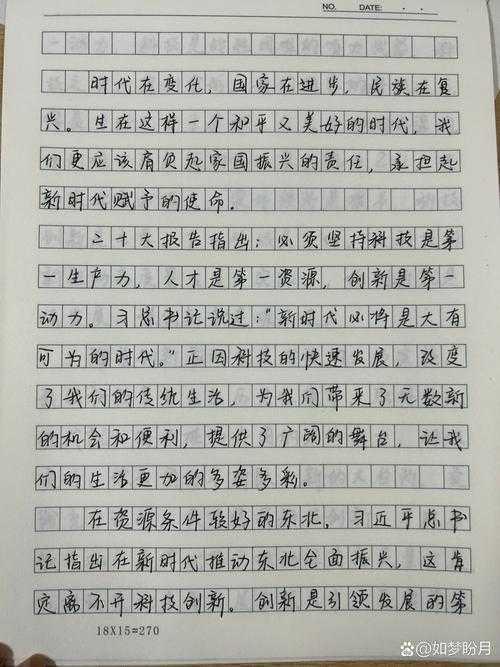 NO. DATE: · ·
时代在变化，国家在进步，民族在复
兴。生在这样一个和平又美好的时代，我
们更应该肩负起家国振兴的责任，承担起
新时代赋予的使命.
二十大报告指出：必须坚持科技是第
一生产力，人才是第一资源，创新是第一
动力。习总书记说过："新时代必将是大有
可为的时代。"正因科技的快速发展，改变
了我们的传统生活，为我们带来了无数新
的机会和便利，提供了广阔的舞台，让我
们的生活更加的多姿多彩。
在资源条件较好的东北，习近平总书
记指出在新时代推动东北全面振兴，这肯
定离不开科技创新。创新是引领发展的第
18X15=270
@如梦盼月